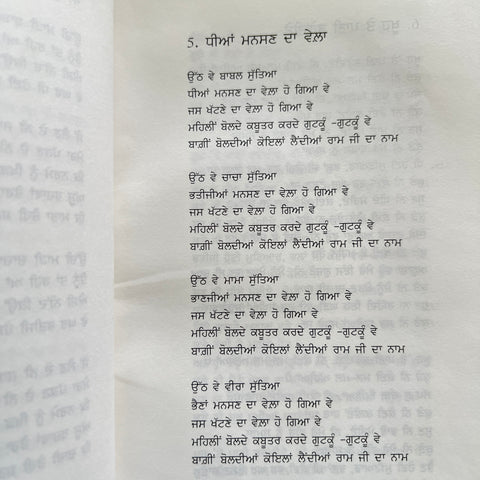 5. ਧੀਆਂ ਮਨਸਣ ਦਾ ਵੇਲ਼ਾ
ਉੱਠ ਵੇ ਬਾਬਲ ਸੁੱਤਿਆ
ਧੀਆਂ ਮਨਸਣ ਦਾ ਵੇਲ਼ਾ ਹੋ ਗਿਆ ਵੇ
ਜਸ ਖੱਟਣੇ ਦਾ ਵੇਲ਼ਾ ਹੋ ਗਿਆ ਵੇ
ਮਹਿਲੀਂ ਬੋਲਦੇ ਕਬੂਤਰ ਕਰਦੇ ਗੁਟਕੂੰ -ਗੁਟਕੂੰ ਵੇ
ਬਾਗ਼ੀਂ ਬੋਲਦੀਆਂ ਕੋਇਲਾਂ ਲੈਂਦੀਆਂ ਰਾਮ ਜੀ ਦਾ ਨਾਮ
ਉੱਠ ਵੇ ਚਾਚਾ ਸੁੱਤਿਆ
ਭਤੀਜੀਆਂ ਮਨਸਣ ਦਾ ਵੇਲ਼ਾ ਹੋ ਗਿਆ ਵੇ
ਜਸ ਖੱਟਣੇ ਦਾ ਵੇਲ਼ਾ ਹੋ ਗਿਆ ਵੇ
ਮਹਿਲੀਂ ਬੋਲਦੇ ਕਬੂਤਰ ਕਰਦੇ ਗੁਟਕੂੰ -ਗੁਟਕੂੰ ਵੇ
ਬਾਗ਼ੀਂ ਬੋਲਦੀਆਂ ਕੋਇਲਾਂ ਲੈਂਦੀਆਂ ਰਾਮ ਜੀ ਦਾ ਨਾਮ
ਉੱਠ ਵੇ ਮਾਮਾ ਸੁੱਤਿਆ
ਭਾਣਜੀਆਂ ਮਨਸਣ ਦਾ ਵੇਲ਼ਾ ਹੋ ਗਿਆ ਵੇ
ਜਸ ਖੱਟਣੇ ਦਾ ਵੇਲ਼ਾ ਹੋ ਗਿਆ ਵੇ
ਮਹਿਲੀਂ ਬੋਲਦੇ ਕਬੂਤਰ ਕਰਦੇ ਗੁਟਕੂੰ -ਗੁਟਕੂੰ ਵੇ
ਬਾਗ਼ੀਂ ਬੋਲਦੀਆਂ ਕੋਇਲਾਂ ਲੈਂਦੀਆਂ ਰਾਮ ਜੀ ਦਾ ਨਾਮ
ਉੱਠ ਵੇ ਵੀਰਾ ਸੁੱਤਿਆ
ਭੈਣਾਂ ਮਨਸਣ ਦਾ ਵੇਲ਼ਾ ਹੋ ਗਿਆ ਵੇ
ਜਸ ਖੱਟਣੇ ਦਾ ਵੇਲ਼ਾ ਹੋ ਗਿਆ ਵੇ
ਮਹਿਲੀਂ ਬੋਲਦੇ ਕਬੂਤਰ ਕਰਦੇ ਗੁਟਕੂੰ -ਗੁਟਕੂੰ ਵੇ
ਬਾਗ਼ੀਂ ਬੋਲਦੀਆਂ ਕੋਇਲਾਂ ਲੈਂਦੀਆਂ ਰਾਮ ਜੀ ਦਾ ਨਾਮ